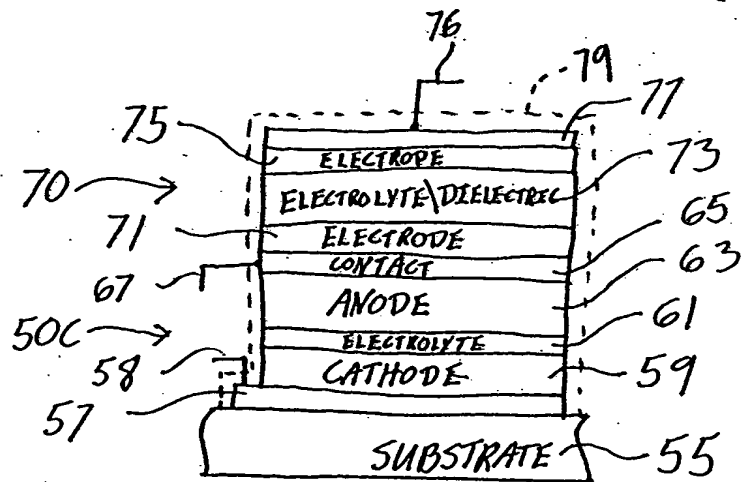 76
79
77
75
ELECTROPE
73
70
ELECTROLYTE\DIELECTRIC
65
71
ELECTRODE
63
67
CONTACT
ANODE
61
50C
ELECTROLYTE
58
CATHODE
59
57
SUBSTRATE
55